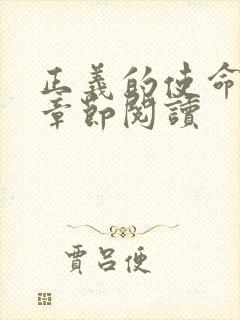 正義的使命
章節閱讀
賈呂便